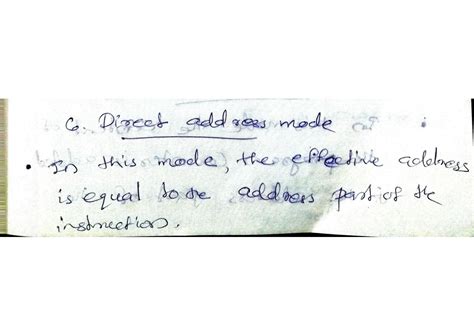 6. Direct address mode
• In this mode, the effective address
is equal to the address part of the
instruction.